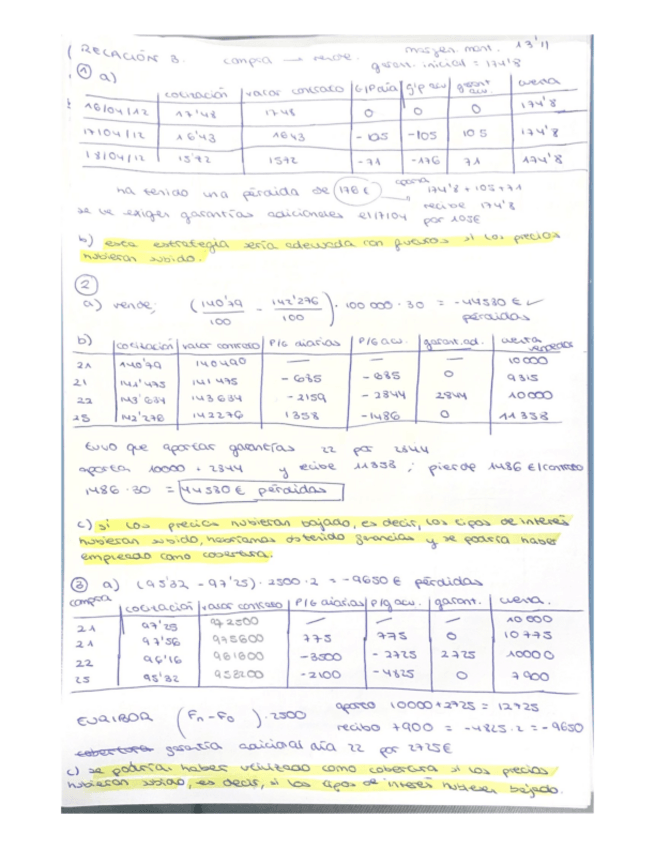 RELACIÓN 3. compra → vende. margen mant. 13'11
garan. inicial = 174'8
① a)
cotización | valor contrato | G/P día | g/p acu | garant acu. | cuenta
16/04/12 | 17'48 | 1748 | 0 | 0 | 0 | 174'8
17/04/12 | 16'43 | 1643 | -105 | -105 | 105 | 174'8
18/04/12 | 15'72 | 1572 | -71 | -176 | 71 | 174'8
ha tenido una pérdida de 176 € aporta 174'8 + 105 + 71
recibe 174'8
se le exigen garantías adicionales el 17/04 por 105€
b) esta estrategia sería adecuada con futuros si los precios
hubieran subido.
②
a) vende; (140'79/100 - 142'276/100) · 100 000 · 30 = -44580 € ✓
pérdidas
b) cotización | valor contrato | P/G diarias | P/G acu. | garant. ad. | cuenta vendedor
21 | 140'79 | 140490 | — | — | — | 10000
21 | 141'475 | 141475 | -685 | -685 | 0 | 9315
22 | 143'634 | 143634 | -2159 | -2844 | 2844 | 10000
25 | 142'276 | 142276 | 1358 | -1486 | 0 | 11358
tuvo que aportar garantías 22 por 2844
aporta 10000 + 2844 y recibe 11358 ; pierde 1486 €/contrato
1486 · 30 = 44580 € pérdidas
c) si los precios hubieran bajado, es decir, los tipos de interés
hubieran subido, habríamos obtenido ganancias y se podría haber
empleado como cobertura.
③ a) (95'32 - 97'25) · 2500 · 2 = -9650 € pérdidas
compra
cotización | valor contrato | P/G diarias | P/g acu. | garant. | cuenta.
21 | 97'25 | 972500 | — | — | — | 10000
21 | 97'56 | 975600 | 775 | 775 | 0 | 10775
22 | 96'16 | 961600 | -3500 | -2725 | 2725 | 10000
25 | 95'32 | 953200 | -2100 | -4825 | 0 | 7900
EURIBOR (Fn - F0) · 2500 aporto 10000 + 2725 = 12725
recibo 7900 = -4825 · 2 = -9650
cobertura garantía adicional día 22 por 2725€
c) se podría haber utilizado como cobertura si los precios
hubieran subido, es decir, si los tipos de interés hubieran bajado.